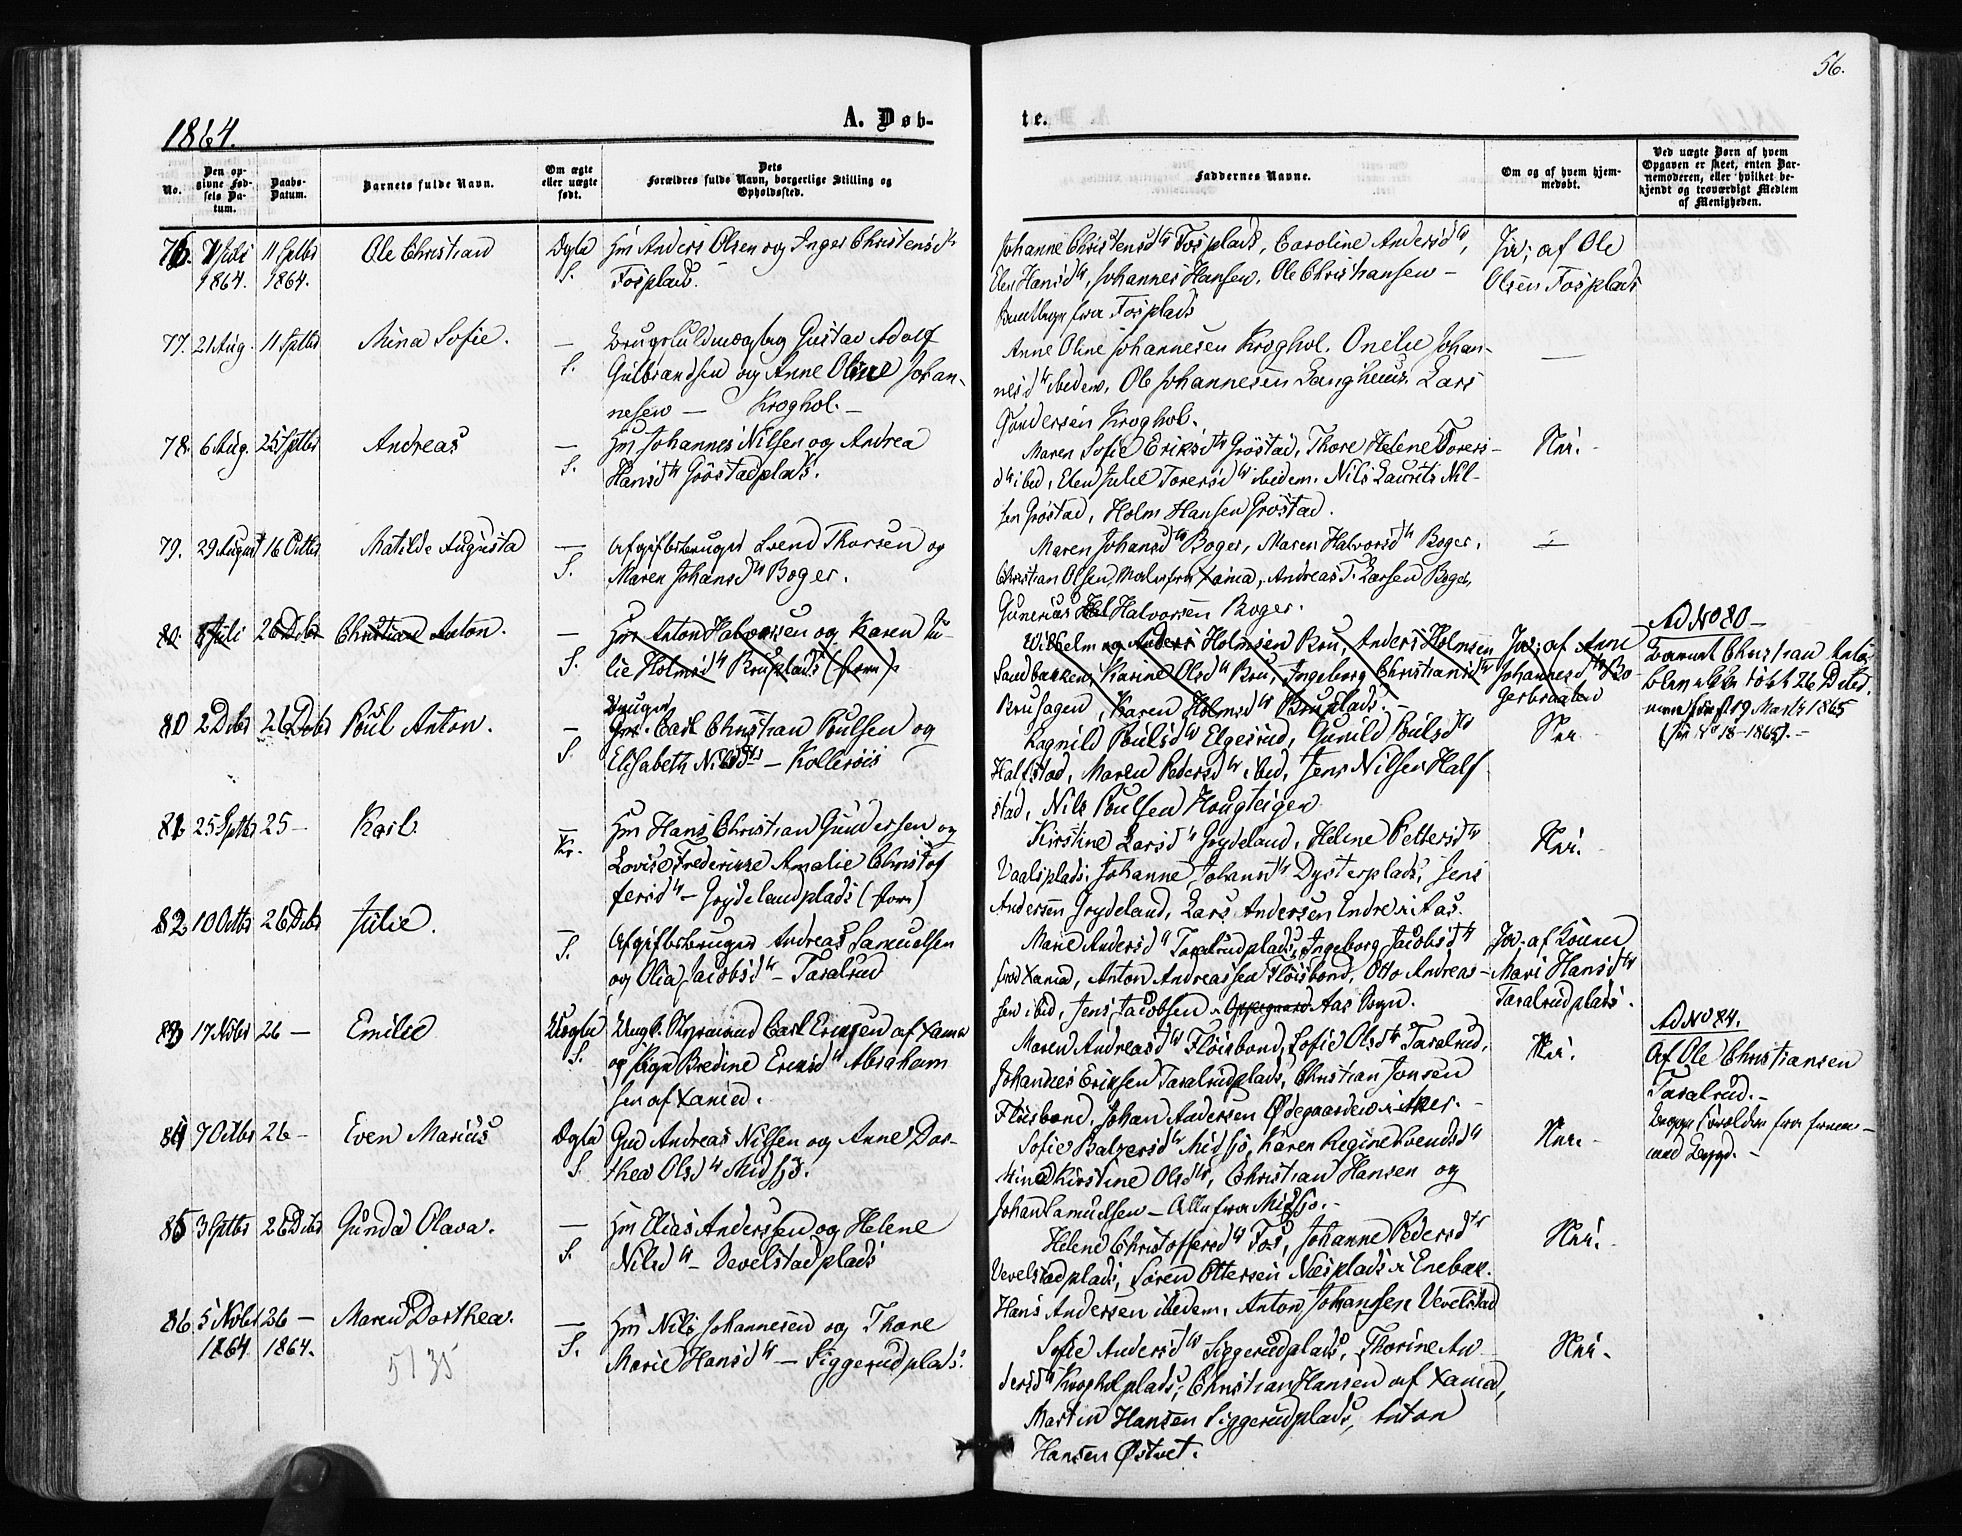 56.
1864.
A. Døb-
te.
No.
Den op-
givne Fød-
sels Da-
tum.
Daabs-
Datum.
Barnets fulde Navn.
Om ægte
eller uægte
født.
Dets
Forældres fulde Navn, borgerlige Stilling og
Opholdssted.
Faddernes Navne.
Om og af hvem hjem-
medøbt.
Ved uægte Børn af hvem
Opgaven er skeet, enten Bar-
nemoderen, eller hvilket be-
kjendt og troværdigt Medlem
af Menigheden.
76. Juli 11 Septbr Ole Christian
1864. 1864.
S.
Anders Olsen og Inger Christensdtr
Fosplads.
Johanne Christensdtr Fosplads, Caroline Andersdtr,
Elen Hansdtr, Johannes Hansen, Ole Christiansen –
fra Fosplads
Ja; af Ole
Olsen Fosplads
77. 21 Aug. 11 Septbr Mina Sofie.
— S.
Gustav Adolf
Gulbrandsen og Anne Oline Johan-
nesen — Kroghol. –
Anne Oline Johannesen Kroghol. Onelie Johan-
nesdtr ibidem, Ole Johannesen Langhuus. Lars
Gundersen Kroghol.
—
78. 6 Aug. 25 Septbr Andreas
— S.
Hm Johannes Nilsen og Andrea
Hansdtr Gröstadplads.
Maren Sofie Eriksdtr Gröstad, Thore Helene Torers-
dtr ibid, Elen Julie Torersdtr ibidem. Nils Laurits Nil-
sen Gröstad, Holm Hansen Gröstad.
Nei.
79. 29 August 16 Octbr Matilde Augusta
— S.
Afgiftsbruger Svend Thorsen og
Maren Johansdtr Boger.
Maren Johansdtr Boger, Maren Halvorsdtr Boger,
Christian Olsen, Maler fra Xania, Andreas T. Larsen Boger,
Gunerius Halvorsen Boger.
80. Juli 26 Debr Christian Anton.
— S.
Hm Anton Halvorsen og Karen Ju-
lie Holmsdtr Bruplads
Wilhelm og Anders Holmsen Bru, Anders Holmsen
Sandbakken, Karine Olsdtr Bru, Ingeborg Christiansdtr
Bruhagen, Karen Holmsdtr Bruplads. –
Ja; af Anne
Johannesdtr Bo-
gerbraaten
Ad No 80 –
Barnet Christian Anton
blev ikke döbt 26 Debr
men först 19 Marts 1865
(No 18-1865). –
80 2 Debr 26 Debr Poul Anton.
— S.
Bruger
Carl Christian Poulsen og
Elisabeth Nilsdtr – Kolleröis
Ragnild Poulsdtr Elgerud, Gunild Poulsdtr
Halfstad, Maren Pedersdtr ibid, Jens Nilsen Half
stad, Nils Poulsen Hougteigen
Nei
81 25 Septbr 25 – Karl.
— Kr.
Hm Hans Christian Gundersen og
Lovise Frederikke Amalie Christof
fersdtr – Grydelandplads
Kirstine Larsdtr Grydeland, Helene Pettersdtr
Vaalsplads. Johanne Johansdtr Dysterplads, Jens
Andersen Grydeland, Lars Andersen Endre i Aas.
Nei.
82 10 Octbr 26 Debr Julie.
— S.
Afgiftsbruger Andreas Samuelsen
og Olia Jacobsdtr – Taralrud
Marie Andersdtr Taralrudplads, Ingeborg Jacobsdtr
fra Xania, Anton Andreassen Flöisbond, Otto Andreas-
sen ibid, Jens Jacobsen i Oppegaard Aas Sogn.
Ja; af Konen
Mari Hansdtr
Taralrudplads.
83 17 Novbr 26 — Emilie
Uægte S.
Ungk. Styrmand Carl Eriksen af Xania
og Pige Bredine Eriksdtr Abraham
sen af Xania.
Maren Andreasdtr Flöisbond, Sofie Olsdtr Taralrud,
Johannes Eriksen Taralrudplads, Christian Jonsen
Flöisbond, Johan Andersen Ödegaarden i Aker. –
Nei.
84 7 Octbr 26 — Even Marius
Ægte S.
Gud Andreas Nilsen og Anne Dor-
thea Olsdtr Midsjö.
Sofie Balzersdtr Midsjö, Karen Regine Svendsdtr
Mina Kirstine Olsdtr, Christian Hansen og
Johan Samuelsen – Alle fra Midsjö. –
Nei.
Ad No 84.
Af Ole Christiansen
Taralrud. –
85 3 Septbr 26 Debr Gunda Olava.
— S.
Hm Elias Anderssen og Helene
Nilsdtr – Vevelstadplads
Helene Christoffersdtr Fos, Johanne Pedersdtr
Vevelstadplads, Sören Ottersen Næsplads i Enebak.
Hans Andersen ibidem, Anton Johansen Vevelstad
Nei.
86 5 Novbr 26 — Maren Dorthea.
1864 1864.
— S.
Hm Nils Johannesen og Thore
Marie Hansdtr – Siggerudplads.
Sofie Andersdtr Siggerudplads, Thorine An
dersdtr Krogholplads, Christian Hansen af Xania,
Martin Hansen Siggerudplads, Anton
Hansen Østvet.
Nei.
5135